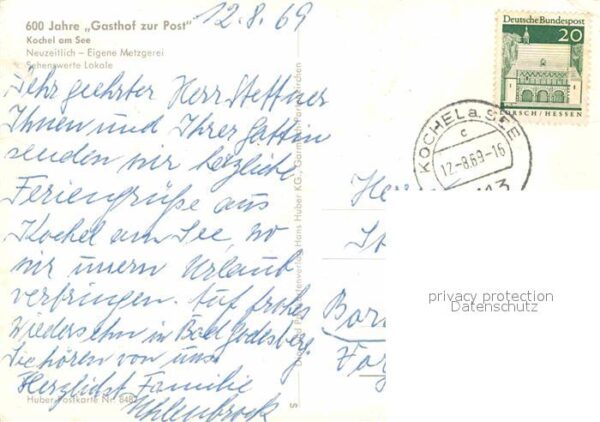 12.8.69
600 Jahre „Gasthof zur Post"
Kochel am See
Neuzeitlich – Eigene Metzgerei
Sehenswerte Lokale
Sehr geehrter Herr Stettner
Ihnen und Ihrer Gattin
senden wir herzliche
Feriengrüße aus
Kochel am See, wo
wir unern Urlaub
verbringen. Auf frohes
Wiedersehn in Bad Godesberg.
Sie hören von uns
Herzlichst Familie
Uhlenbrock
Huber-Postkarte Nr. 8482
Hans Huber KG., Garmisch-Partenkirchen
Deutsche Bundespost
20
LORSCH/HESSEN
KOCHEL a. SEE
c
12.-8.69-16
privacy protection
Datenschutz